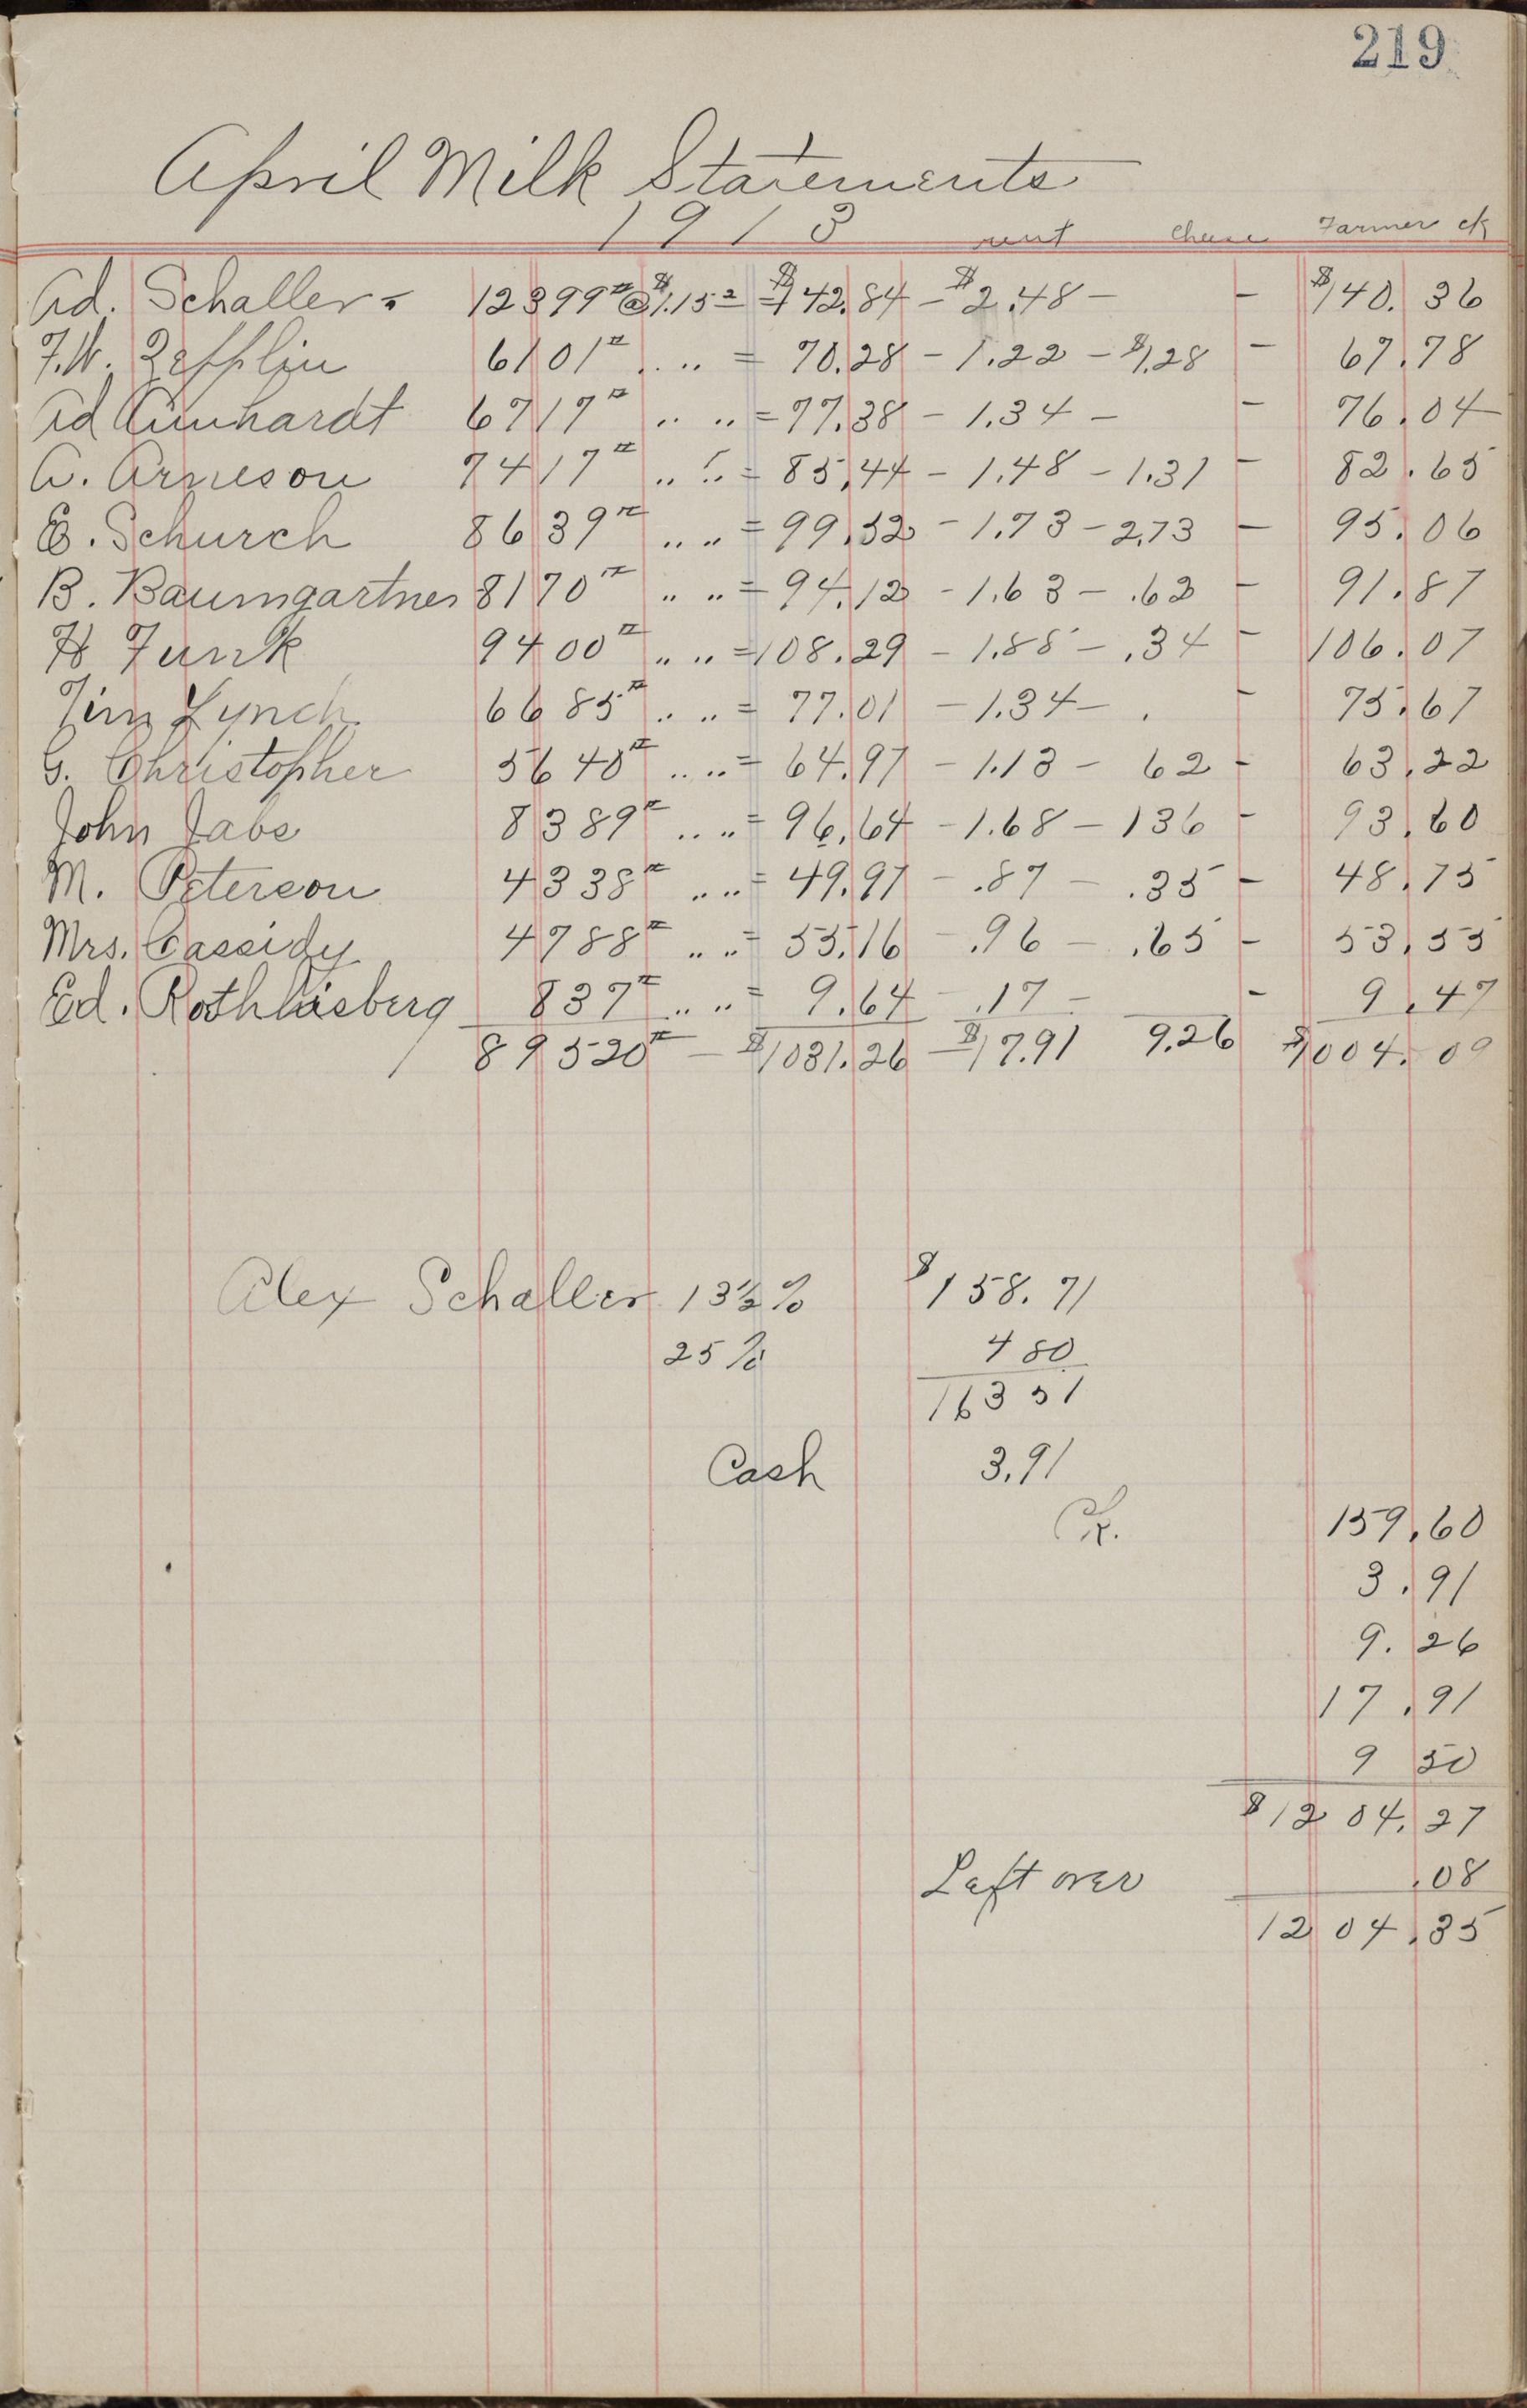 219
April Milk Statements
1913
rent cheese Farmer ck
Ad. Schaller - 12399# @ $1.15² = $142.84 - $2.48 - - $140.36
F.W. Zefflin 6101# .. .. = 70.28 - 1.22 - $1.28 - 67.78
Ad 6717# .. .. = 77.38 - 1.34 - - 76.04
A. Arneson 7417# .. .. = 85.44 - 1.48 - 1.31 - 82.65
E. Schurch 8639# .. .. = 99.52 - 1.73 - 2.73 - 95.06
B. Baumgartner 8170# .. .. = 94.12 - 1.63 - .62 - 91.87
H Funk 9400# .. .. = 108.29 - 1.88 - .34 - 106.07
Tim Lynch 6685# .. .. = 77.01 - 1.34 - . - 75.67
G. Christopher 5640# .. .. = 64.97 - 1.13 - 62 - 63.22
John Jabs 8389# .. .. = 96.64 - 1.68 - 136 - 93.60
M. Peterson 4338# .. .. = 49.97 - .87 - .35 - 48.75
Mrs. Cassidy 4788# .. .. = 55.16 - .96 - .65 - 53.55
Ed. Rothlisberg 837# .. .. = 9.64 - .17 - - 9.47
89520# - $1031.26 - $17.91 9.26 $1004.09
Alex Schaller 13½% $158.71
25% 480
16351
Cash 3.91
Ck. 159.60
3.91
9.26
17.91
9 50
$1204.27
Left over .08
1204.35